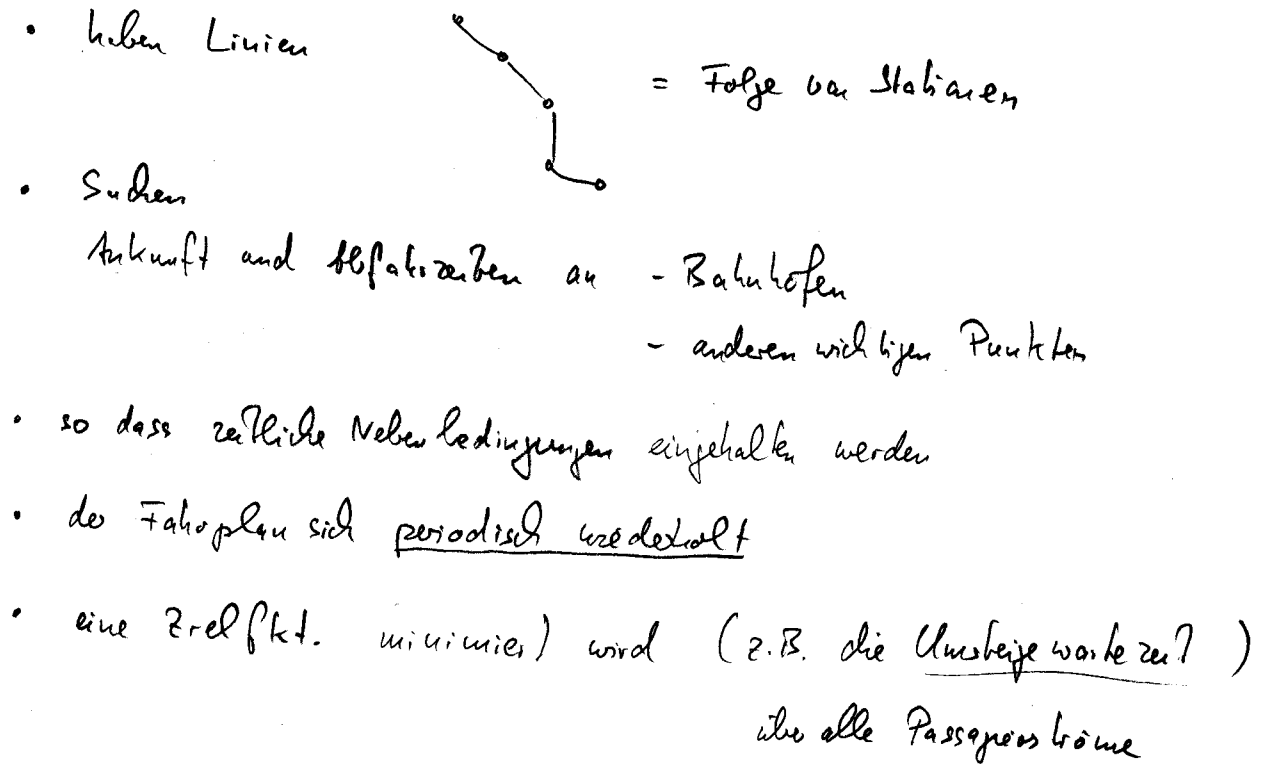 • haben Linien = Folge von Stationen
• Suchen
Ankunft und Abfahrzeiten an - Bahnhöfen
- anderen wichtigen Punkten
• so dass zeitliche Nebenbedingungen eingehalten werden
• der Fahrplan sich periodisch wiederholt
• eine Zielfkt. minimiert wird (z.B. die Umsteigewartezeit)
über alle Passagierströme